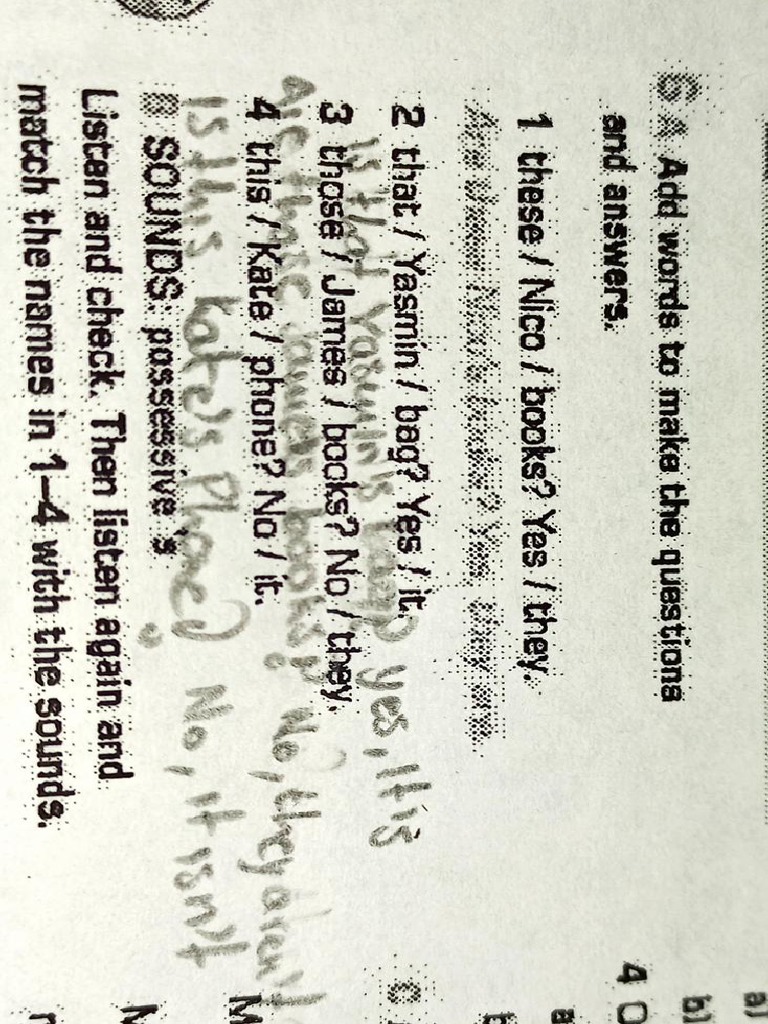 6 A Add words to make the questions
and answers.
1 these / Nico / books? Yes / they.
Are these Nico's books? Yes, they are.
2 that / Yasmin / bag? Yes / it.
Is that Yasmin's bag? yes, It is
3 those / James / books? No / they.
Are those James's books? No, they aren't
4 this / Kate / phone? No / it.
Is this Kate's Phone? No, it isn't
B SOUNDS: possessive 's
Listen and check. Then listen again and
match the names in 1–4 with the sounds.
a)
b)
4
C